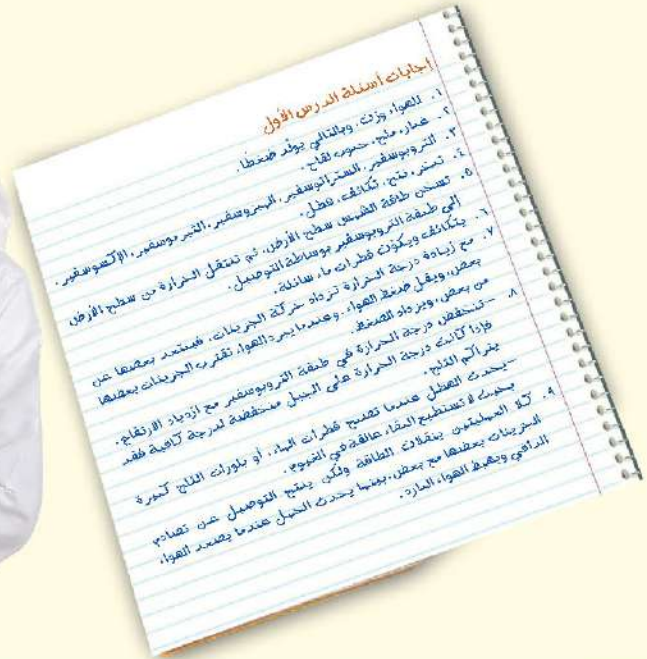 إجابات أسئلة الدرس الأول
١. للهواء وزن، وبالتالي يولد ضغطًا.
٢. غبار، ملح، حبوب لقاح.
٣. التروبوسفير، الستراتوسفير، الميزوسفير، الثيرموسفير، الإكسوسفير.
٤. تبخر، نتح، تكاثف، هطل.
٥. تسخن طاقة الشمس سطح الأرض، ثم تنتقل الحرارة من سطح الأرض
إلى طبقة التروبوسفير بوساطة التوصيل.
٦. يتكاثف ويكوّن قطرات ماء سائلة.
٧. مع زيادة درجة الحرارة تزداد حركة الجزيئات، فيبتعد بعضها عن
بعض، ويقل ضغط الهواء. وعندما يبرد الهواء، تقترب الجزيئات بعضها
من بعض، ويزداد الضغط.
٨. -تنخفض درجة الحرارة في طبقة التروبوسفير مع ازدياد الارتفاع.
فإذا كانت درجة الحرارة على الجبل منخفضة لدرجة كافية فقد
يتراكم الثلج.
-يحدث الهطل عندما تصبح قطرات الماء، أو بلورات الثلج كبيرة
بحيث لا تستطيع البقاء عالقة في الغيوم.
٩. كلا العمليتين ينقلان الطاقة ولكن ينتج التوصيل عن تصادم
الجزيئات بعضها مع بعض، بينما يحدث الحمل عندما يصعد الهواء
الدافئ ويهبط الهواء البارد.